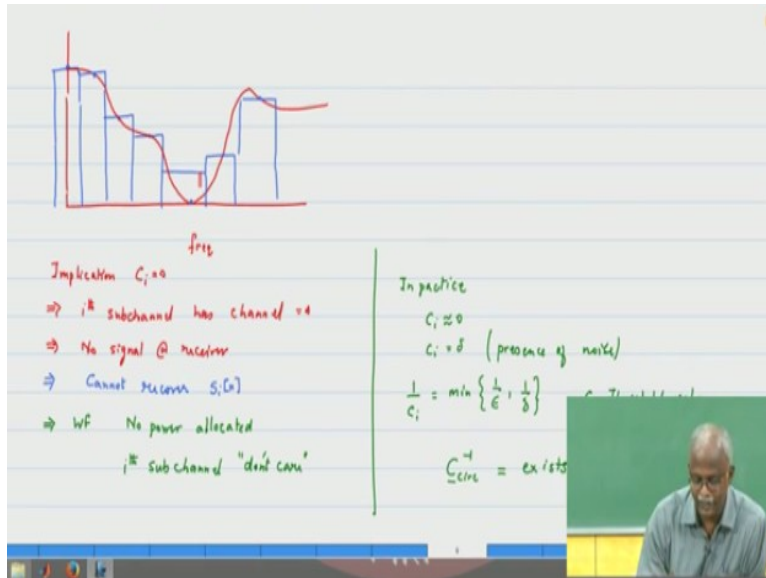 freq
Implication C_i = 0
⇒ i^th subchannel has channel = 0
⇒ No signal @ receiver
⇒ Cannot recover S_i[n]
⇒ WF No power allocated
i^th subchannel "don't care"
In pactice
C_i ≈ 0
C_i = δ (presence of noise)
1/C_i = min { 1/ϵ , 1/δ }
C_circ^-1 = exists